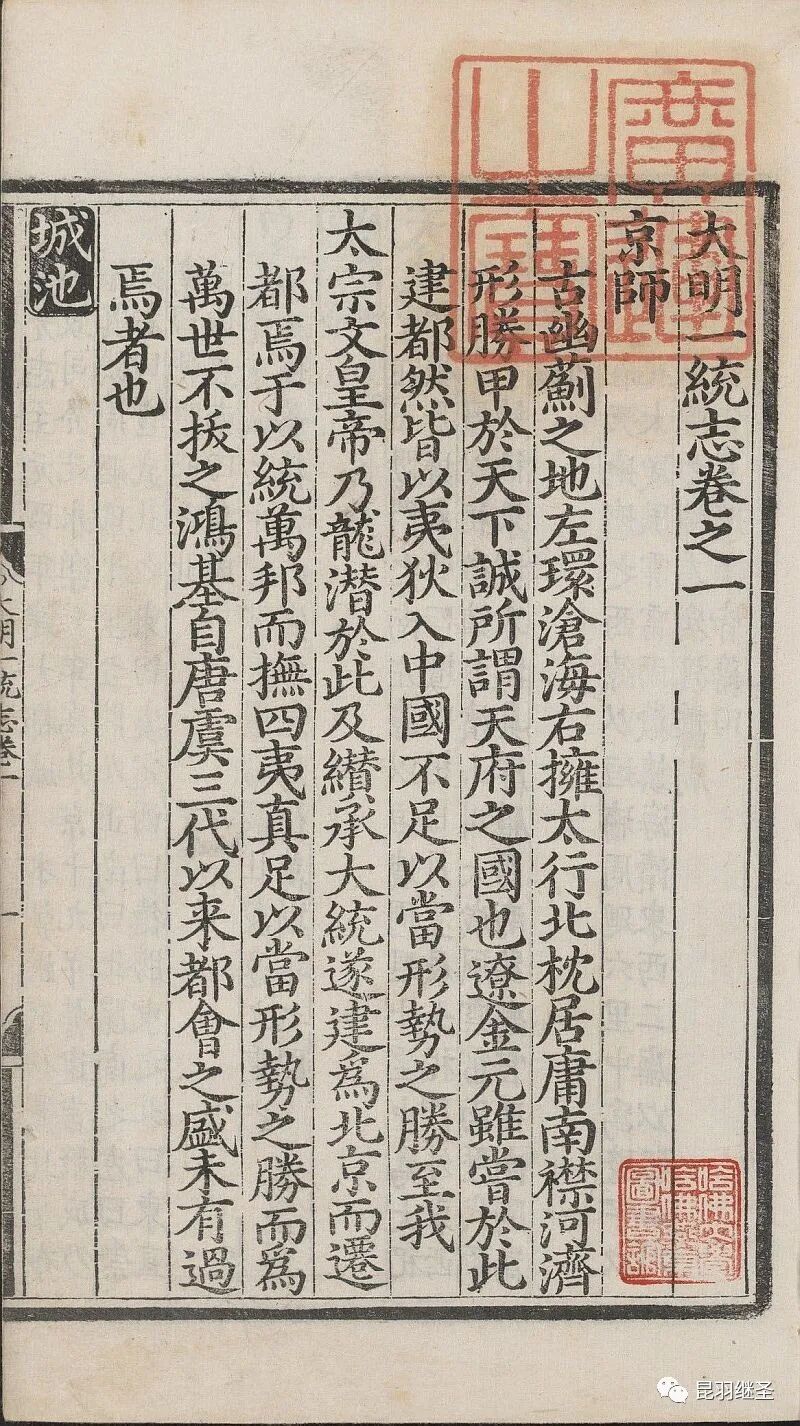 大明一統志卷之一
京師
古幽薊之地左環滄海右擁太行北枕居庸南襟河濟
形勝甲於天下誠所謂天府之國也遼金元雖嘗於此
建都然皆以夷狄入中國不足以當形勢之勝至我
太宗文皇帝乃龍潛於此及纘承大統遂建為北京而遷
都焉于以統萬邦而撫四夷真足以當形勢之勝而為
萬世不拔之鴻基自唐虞三代以来都會之盛未有過
焉者也
城池
大明一統志卷一
一
廣運之寶
昆羽继圣